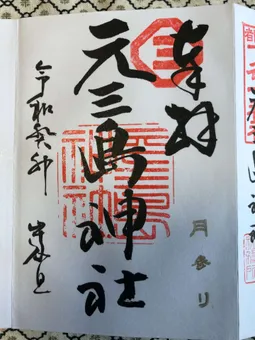 奉拝
元三島神社
月参り
令和癸卯